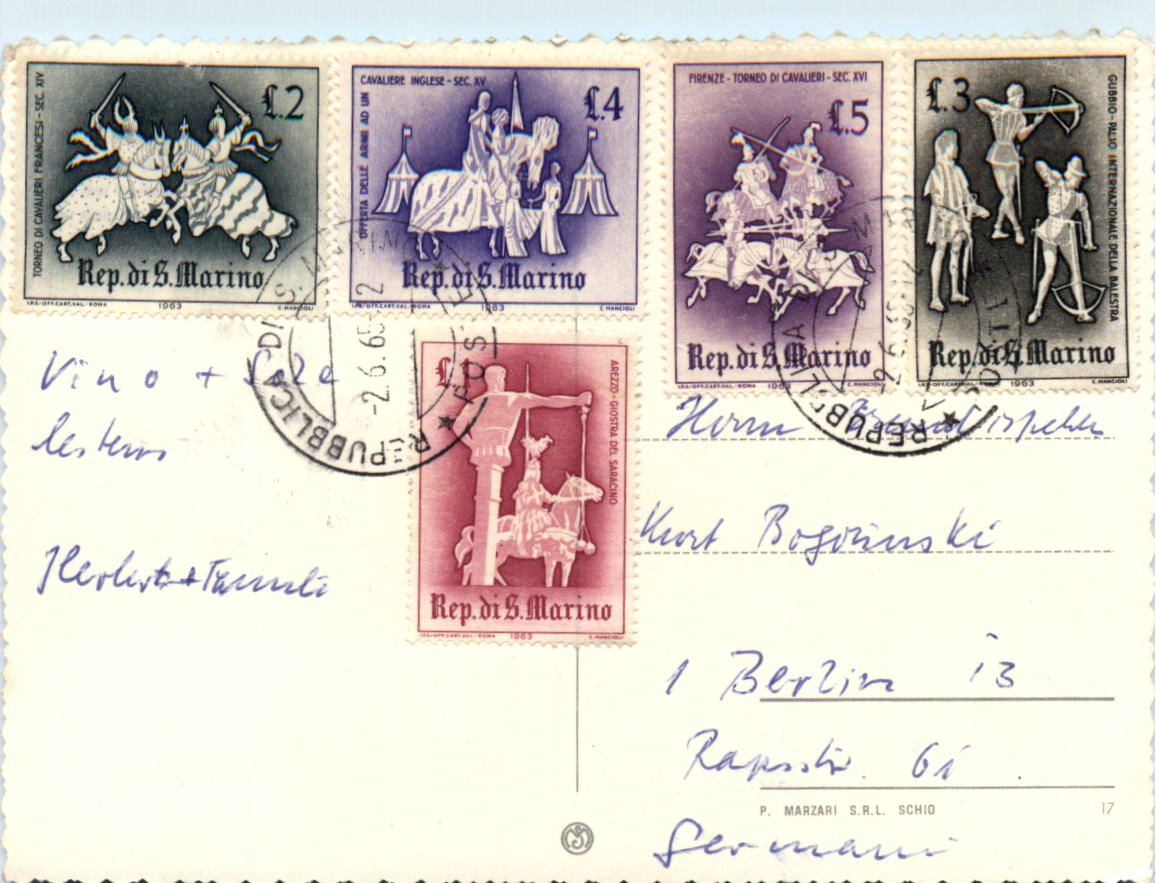 TORNEO DI CAVALIERI FRANCESI - SEC. XIV
L.2
Rep. di S. Marino
I.P.S.-OFF.CART.VAL.-ROMA 1963 E. MANCIOLI
OFFERTA DELLE ARMI AD UN
CAVALIERE INGLESE - SEC. XV
L.4
Rep. di S. Marino
I.P.S.-OFF.CART.VAL.-ROMA 1963 E. MANCIOLI
FIRENZE - TORNEO DI CAVALIERI - SEC. XVI
L.5
Rep. di S. Marino
I.P.S.-OFF.CART.VAL.-ROMA 1963 E. MANCIOLI
L.3
GUBBIO - PALIO INTERNAZIONALE DELLA BALESTRA
Rep. di S. Marino
I.P.S.-OFF.CART.VAL.-ROMA 1963 E. MANCIOLI
REPUBBLICA DI S. M
POSTE
-2.6.65-12
REPUBBLICA
2.6.65-12
L.1
AREZZO - GIOSTRA DEL SARACINO
Rep. di S. Marino
I.P.S.-OFF.CART.VAL.-ROMA 1963 E. MANCIOLI
Vino +
Herbert +
Herrn
Kurt
1 Berlin 13
P. MARZARI S.R.L. SCHIO 17
Germani